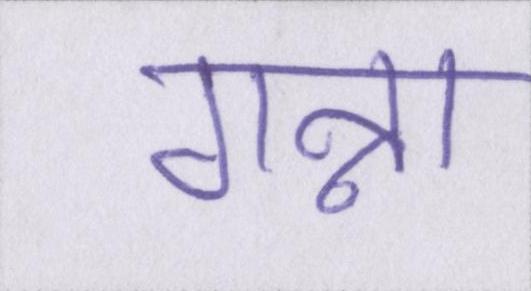 गन्ना